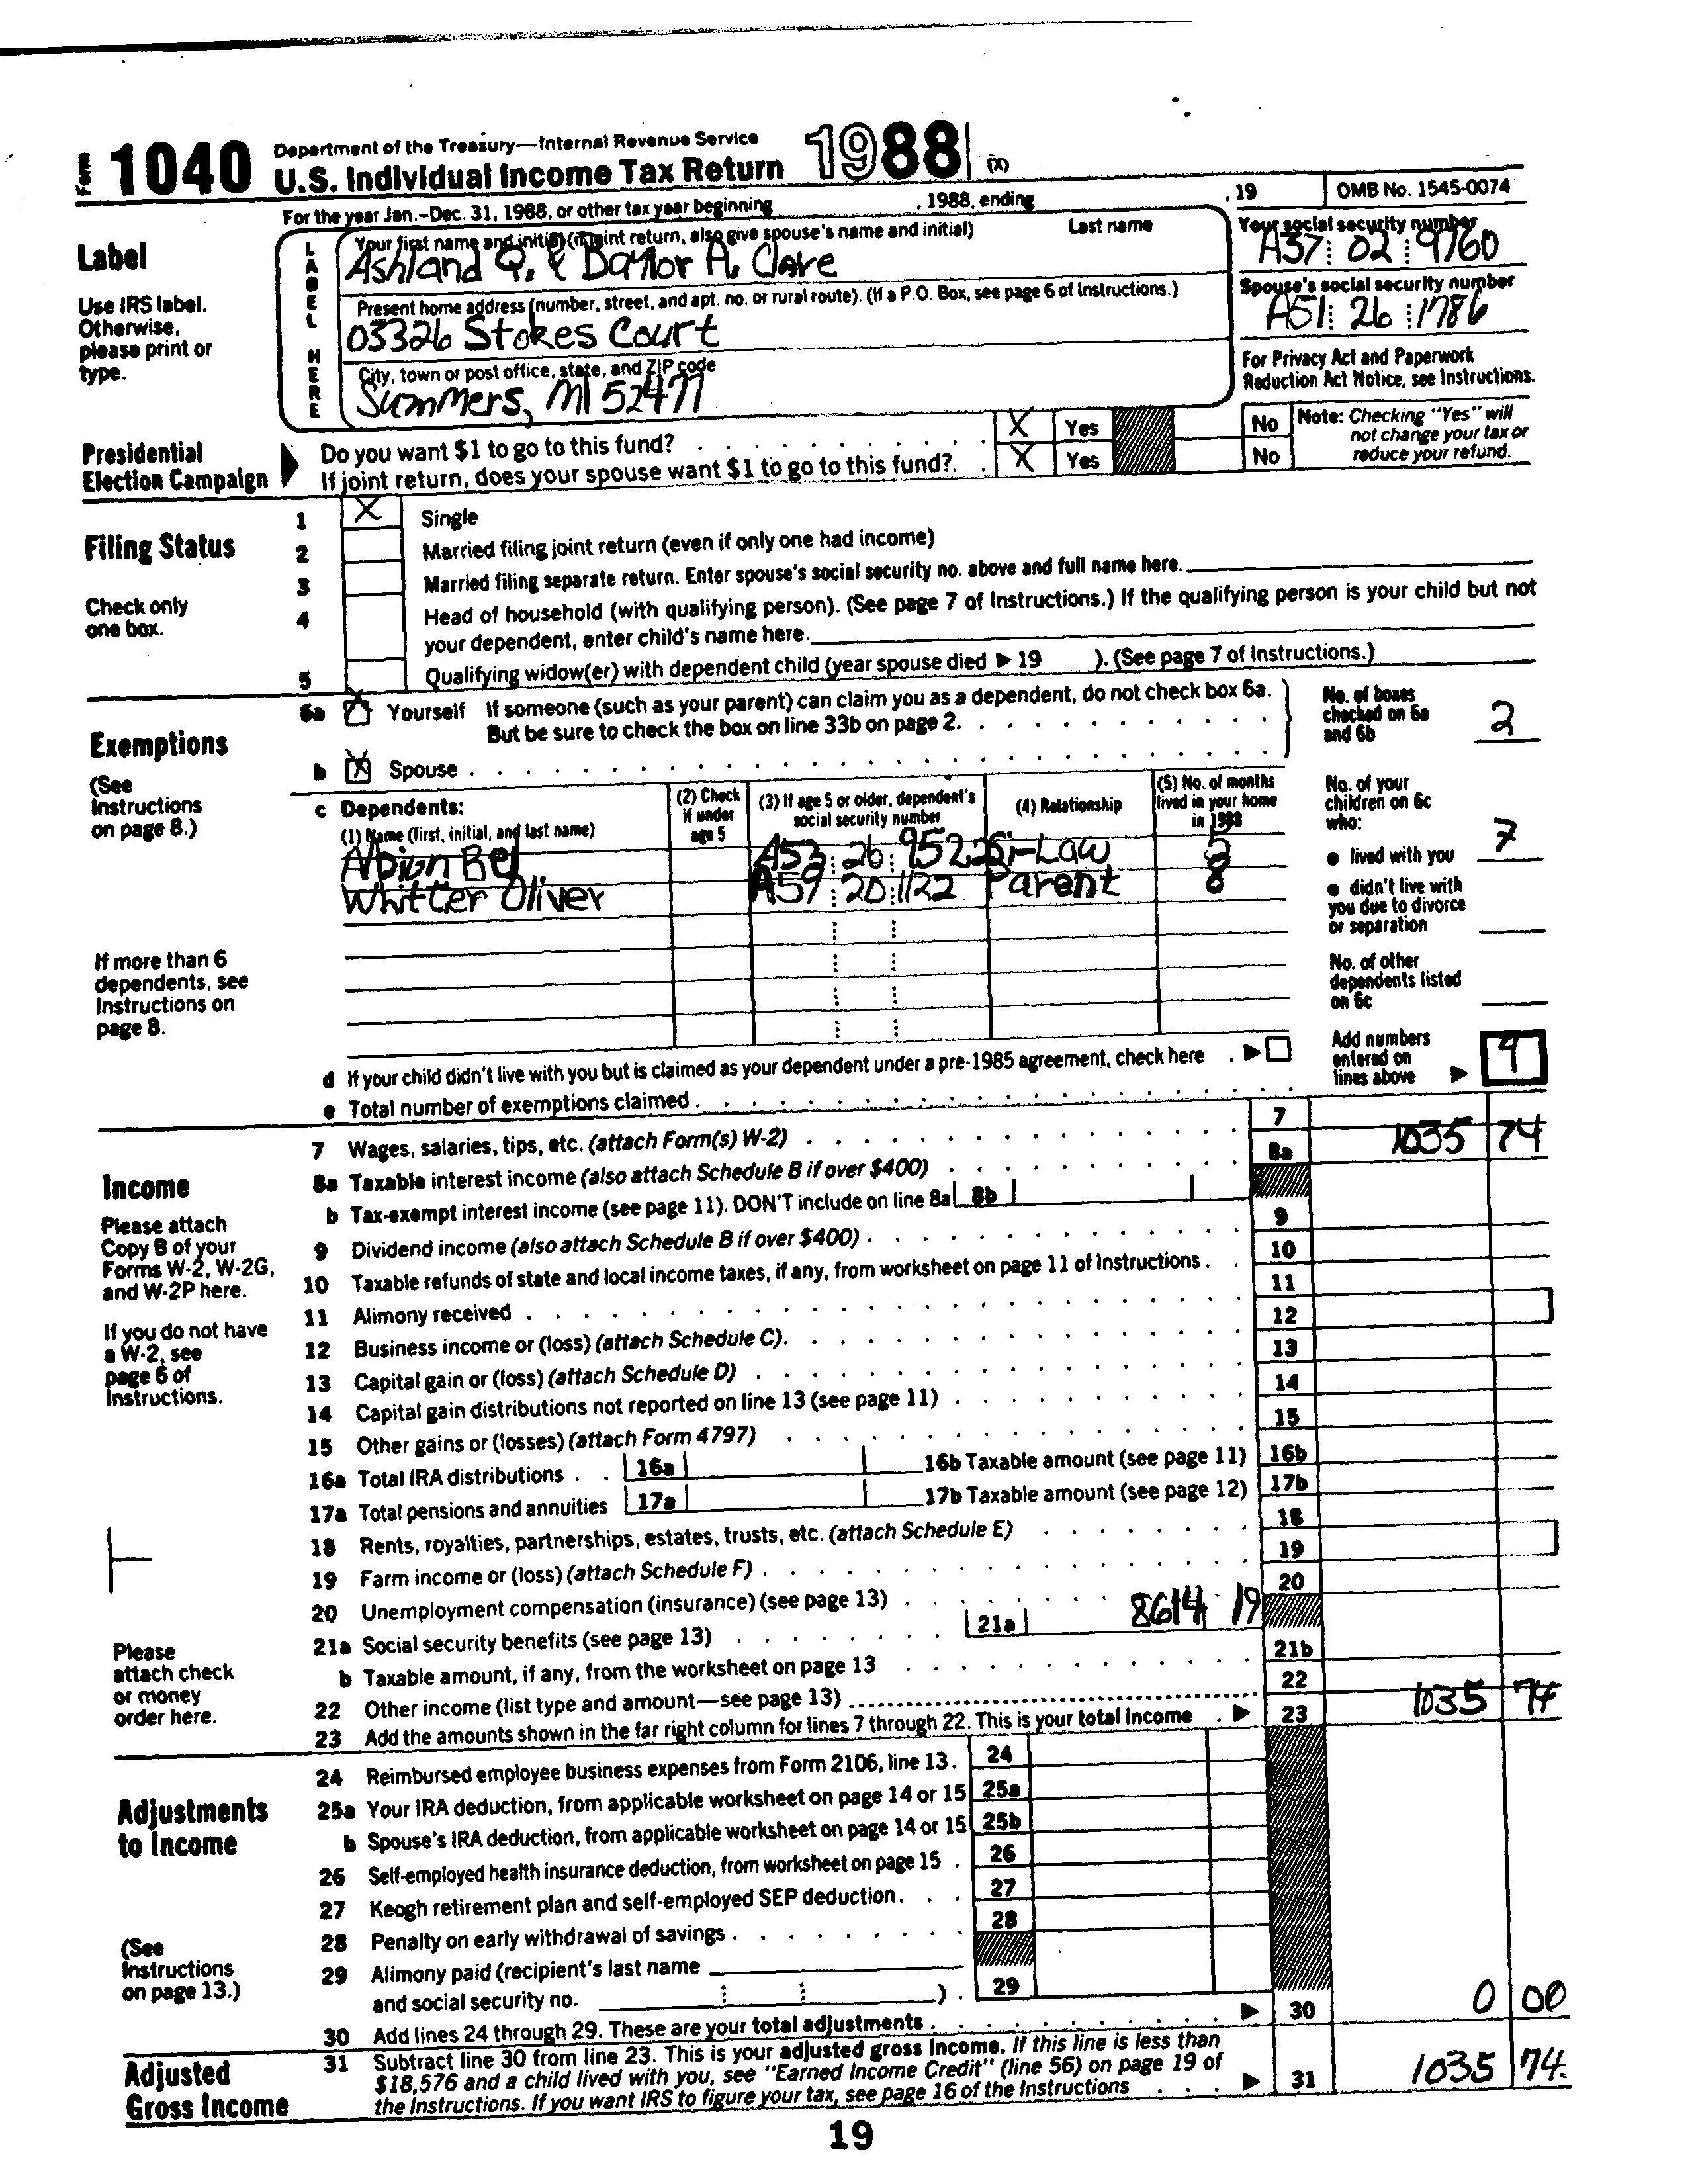 Form 1040 Department of the Treasury—Internal Revenue Service
U.S. Individual Income Tax Return 1988 (X)
For the year Jan.-Dec. 31, 1988, or other tax year beginning , 1988, ending , 19 OMB No. 1545-0074
Label
Use IRS label.
Otherwise,
please print or
type.
LABEL HERE
Your first name and initial (if joint return, also give spouse's name and initial) Last name
Ashland Q. & Baylor A. Clare
Your social security number
A37 02 9760
Present home address (number, street, and apt. no. or rural route). (If a P.O. Box, see page 6 of Instructions.)
03326 Stokes Court
Spouse's social security number
A51 26 1786
City, town or post office, state, and ZIP code
Summers, MI 52477
For Privacy Act and Paperwork
Reduction Act Notice, see Instructions.
Presidential
Election Campaign
Do you want $1 to go to this fund? X Yes No
If joint return, does your spouse want $1 to go to this fund? X Yes No
Note: Checking "Yes" will
not change your tax or
reduce your refund.
Filing Status
Check only
one box.
1 X Single
2 Married filing joint return (even if only one had income)
3 Married filing separate return. Enter spouse's social security no. above and full name here.
4 Head of household (with qualifying person). (See page 7 of Instructions.) If the qualifying person is your child but not
your dependent, enter child's name here.
5 Qualifying widow(er) with dependent child (year spouse died ▶ 19 ). (See page 7 of Instructions.)
Exemptions
(See
Instructions
on page 8.)
6a X Yourself If someone (such as your parent) can claim you as a dependent, do not check box 6a.
But be sure to check the box on line 33b on page 2.
b X Spouse
No. of boxes
checked on 6a
and 6b 2
c Dependents:
(1) Name (first, initial, and last name)
(2) Check
if under
age 5
(3) If age 5 or older, dependent's
social security number
(4) Relationship
(5) No. of months
lived in your home
in 1988
Albion Bel A53 26 952 -Law
Whitter Oliver A59 20 1122 Parent 8
No. of your
children on 6c
who:
● lived with you 7
● didn't live with
you due to divorce
or separation
No. of other
dependents listed
on 6c
If more than 6
dependents, see
Instructions on
page 8.
d If your child didn't live with you but is claimed as your dependent under a pre-1985 agreement, check here ▶
e Total number of exemptions claimed
Add numbers
entered on
lines above ▶ 9
Income
Please attach
Copy B of your
Forms W-2, W-2G,
and W-2P here.
If you do not have
a W-2, see
page 6 of
Instructions.
Please
attach check
or money
order here.
7 Wages, salaries, tips, etc. (attach Form(s) W-2) 7
8a Taxable interest income (also attach Schedule B if over $400) 8a 1035 74
b Tax-exempt interest income (see page 11). DON'T include on line 8a 8b
9 Dividend income (also attach Schedule B if over $400) 9
10 Taxable refunds of state and local income taxes, if any, from worksheet on page 11 of Instructions 10
11 Alimony received 11
12 Business income or (loss) (attach Schedule C) 12
13 Capital gain or (loss) (attach Schedule D) 13
14 Capital gain distributions not reported on line 13 (see page 11) 14
15 Other gains or (losses) (attach Form 4797) 15
16a Total IRA distributions 16a 16b Taxable amount (see page 11) 16b
17a Total pensions and annuities 17a 17b Taxable amount (see page 12) 17b
18 Rents, royalties, partnerships, estates, trusts, etc. (attach Schedule E) 18
19 Farm income or (loss) (attach Schedule F) 19
20 Unemployment compensation (insurance) (see page 13) 20
21a Social security benefits (see page 13) 21a 8614 19
b Taxable amount, if any, from the worksheet on page 13 21b
22 Other income (list type and amount—see page 13) 22
23 Add the amounts shown in the far right column for lines 7 through 22. This is your total income ▶ 23 1035 74
Adjustments
to Income
(See
Instructions
on page 13.)
24 Reimbursed employee business expenses from Form 2106, line 13. 24
25a Your IRA deduction, from applicable worksheet on page 14 or 15 25a
b Spouse's IRA deduction, from applicable worksheet on page 14 or 15 25b
26 Self-employed health insurance deduction, from worksheet on page 15 26
27 Keogh retirement plan and self-employed SEP deduction 27
28 Penalty on early withdrawal of savings 28
29 Alimony paid (recipient's last name
and social security no. ) 29
30 Add lines 24 through 29. These are your total adjustments ▶ 30 0 00
Adjusted
Gross Income
31 Subtract line 30 from line 23. This is your adjusted gross income. If this line is less than
$18,576 and a child lived with you, see "Earned Income Credit" (line 56) on page 19 of
the Instructions. If you want IRS to figure your tax, see page 16 of the Instructions ▶ 31 1035 74.
19